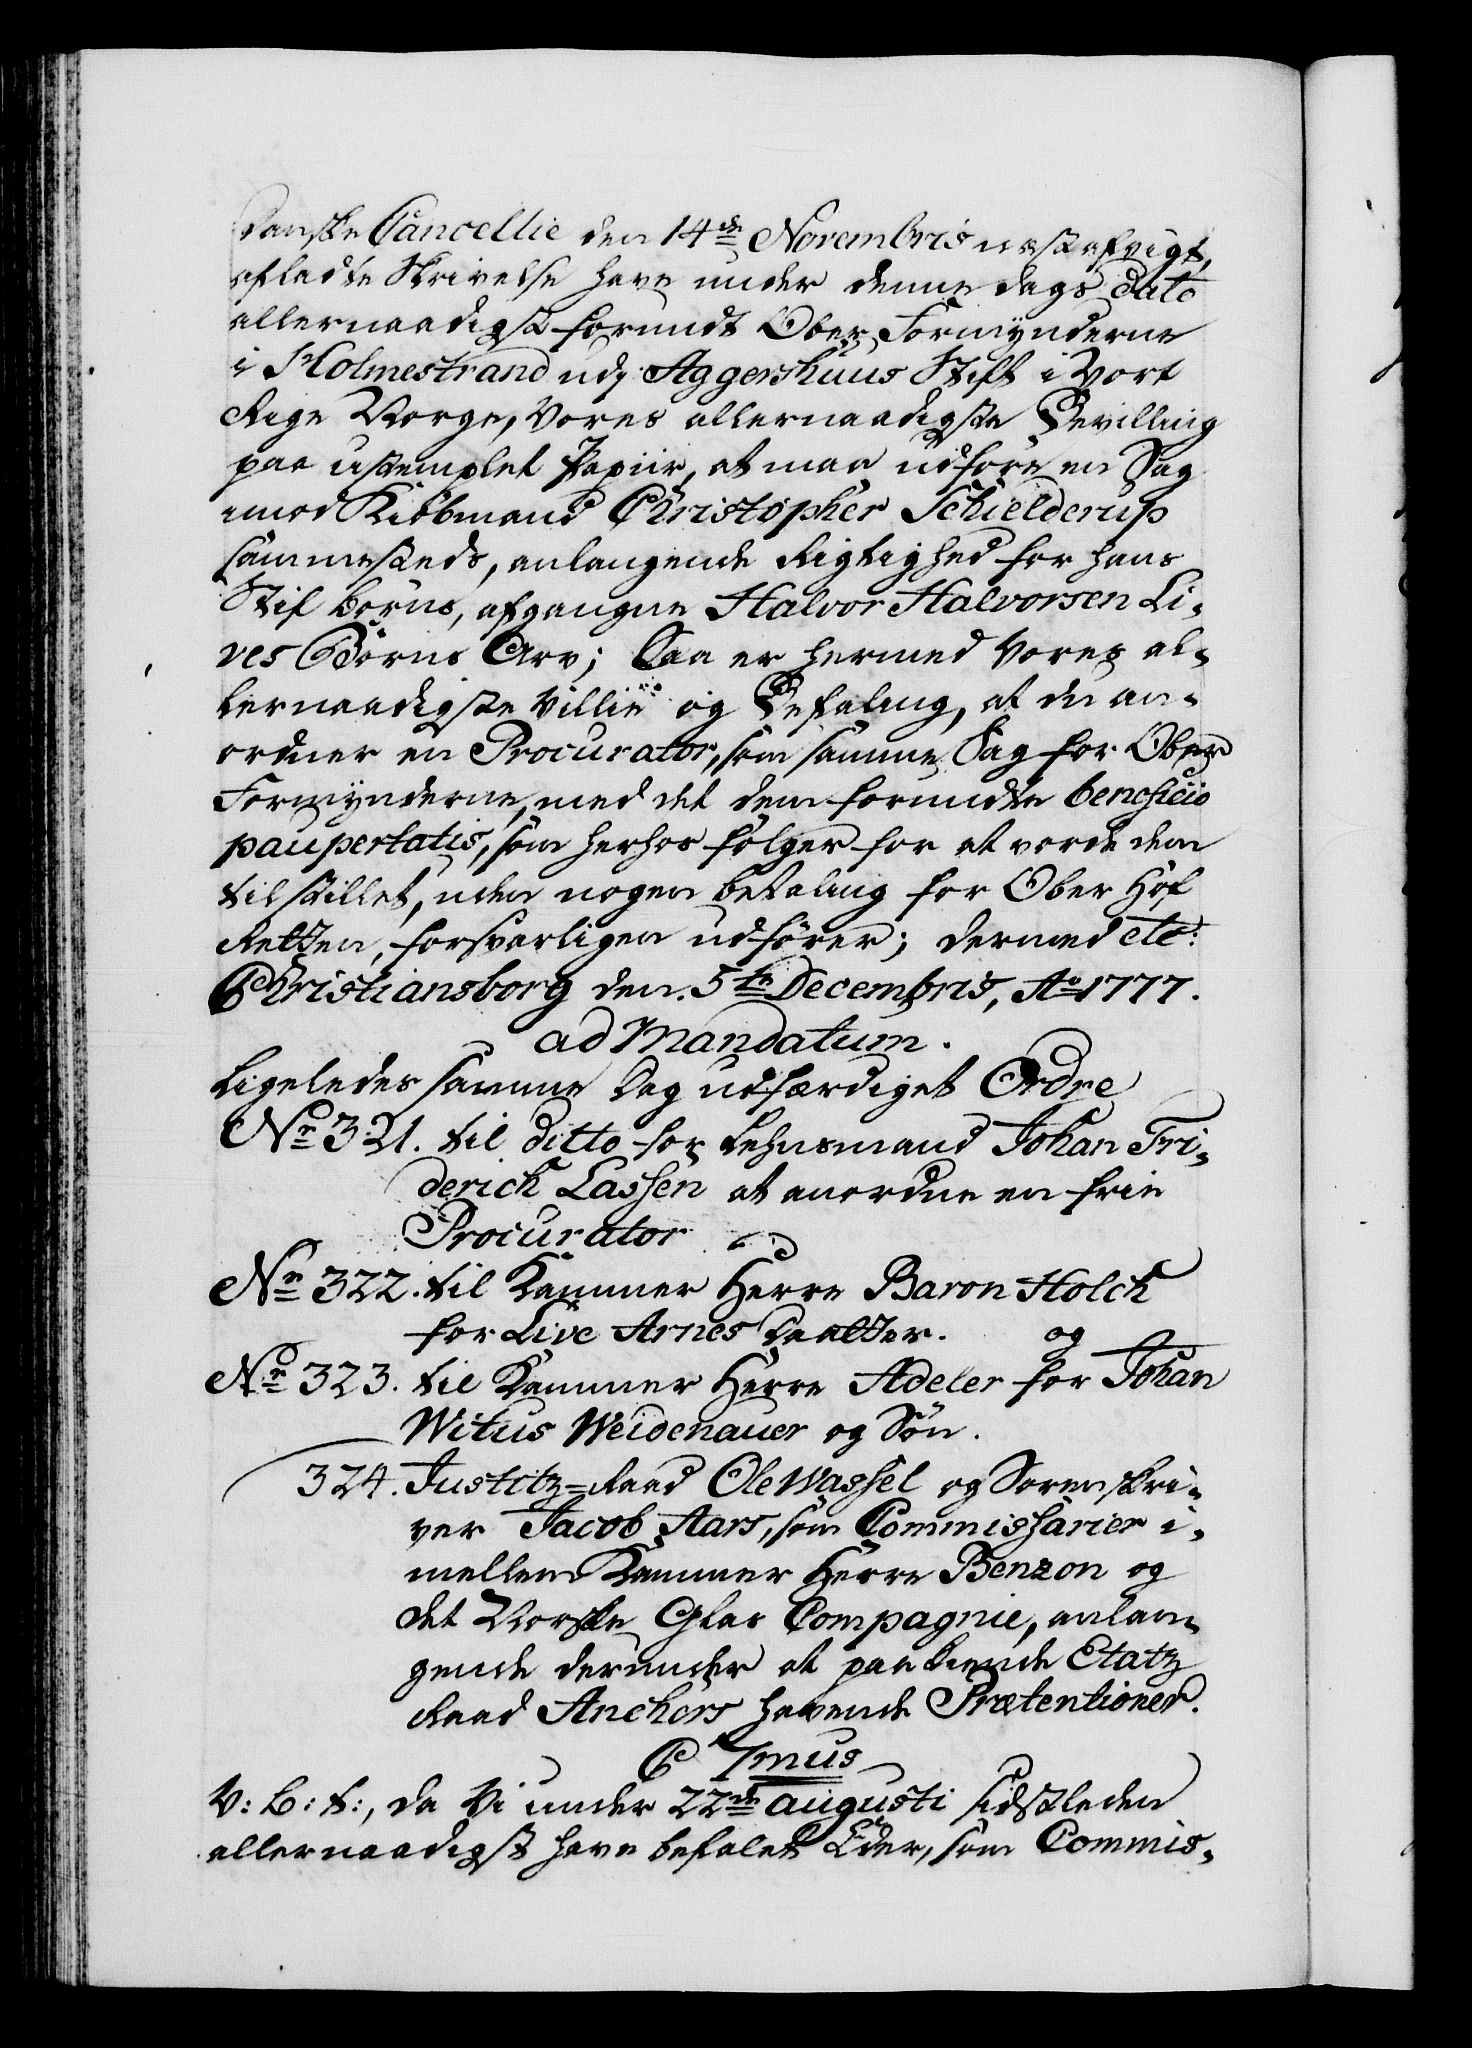 Danske Cancellie den 14de Novembris næstafvigt,
afladte Skrivelse have under denne Dags Dato
allernaadigst forundt Ober Formynderne
i Holmestrand udj Aggershuus Stift i Vort
Rige Norge, Vores allernaadigste Bevilling
paa ustemplet Papiir, at maa udføre en Sag
imod Kiøbmand Christopher Schielderup
sammesteds, anlangende Rigtighed for hans
Stif Børns, afgangne Halvor Halvorsen Li-
ves Børns Arv; Saa er hermed Vores al-
lernaadigste Villie og Befaling, at du an-
ordner en Procurator, som samme Sag for Ober
Formynderne, med det dem forundte beneficio
paupertatis, som herhos følger for at vorde dem
tilstillet, uden nogen betaling for Ober Hof
Retten, forsvarligen udfører; Dermed etc:
Christiansborg den 5te Decembris, Ao 1777.
ad Mandatum.
Ligeledes samme Dag udfærdiget Ordre
No 321. til ditto for Lehnsmand Johan Fri-
derich Lassen at anordne en frie
Procurator
No 322. til Kammer Herre Baron Holck
for Live Arnes Daatter. og
No 323. til Kammer Herre Adeler for Johan
Witus Weidenauer og Søn.
324. Justitz-Raad Ole Wassel og Sorenskri-
ver Jacob Aars, som Commissarier i-
mellem Kammer Herre Benzon og
det Norske Glas Compagnie, anlan-
gende derunder at paakiende Etatz
Raad Anchers havende Prætentioner.
C 7mus
V: G: T:, Da Vi under 22de Augusti sidstleden
allernaadigst have befalet Eder, som Commis-